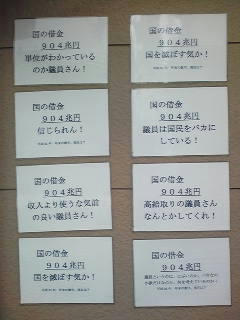 国の借金
904兆円
単位がわかっている
のか議員さん！
国の借金
904兆円
国を滅ぼす気か！
国の借金
904兆円
信じられん！
国の借金
904兆円
議員は国民をバカに
している！
国の借金
904兆円
収入より使うな気前
の良い議員さん！
国の借金
904兆円
高給取りの議員さん
なんとかしてくれ！
国の借金
904兆円
国を滅ぼす気か！
国の借金
904兆円